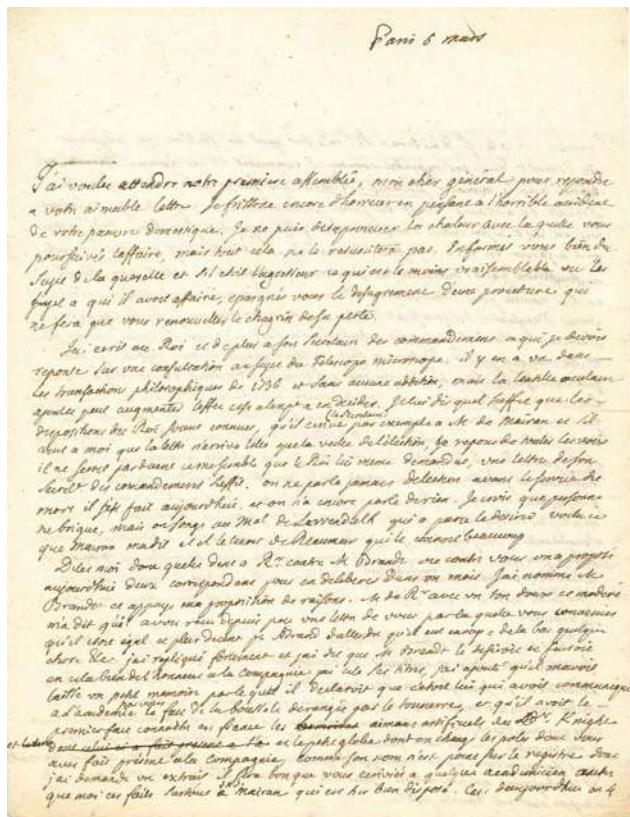 Paris 6 mars
J'ai voulu attendre notre première assemblée, mon cher général pour repondre
a votre aimable lettre Je frissone encore d'horreur en pensant a l'horrible accident
de votre pauvre domestique. Je ne puis desapprouver la chaleur avec la quelle vous
poursuivés l'affaire, mais tout cela ne le resuscitera pas. Informes vous bien du
sujet de la querelle et s'il etoit l'agresseur ce qui est le moins vraisemblable vu les
a qui il avoit affaire, epargnés vous le desagrement d'une procedure qui
ne fera que vous renouveller le chagrin de sa perte.
J'ai ecrit au Roi et de plus a son Secretaire des commandemens a qui je devois
reponse sur une consultation au sujet du Telescope microscope. il y en a un dans
les transactions philosophiques de 1736 et sans aucune addition, mais la lentille oculaire
peut augmenter l'effet
dispositions du Roi soient connues, qu'il ecrive par exemple a M. de Mairan et s'il
veut a moi que la lettre n'arrive la veille de l'élection, Je repons de toutes les voix
il ne seroit pas que le Roi lui meme demandat, une lettre de son
Secret. des commandemens suffit. on ne parle jamais d'election avant le service du
mort il s'est fait aujourdhui, et on n'a encore parlé de rien. Je crois que personne
ne brigue, mais on songe au Mal. de Lowendalh qui a paru le desirer voila ce
que mairan m'a dit et il le tient de Reaumur qui le connoit beaucoup
Dites moi donc quelle dent a R. contre M Brandt on a proposé
aujourdhui deux correspondans pour en deliberer dans un mois J'ai nommé M.
Brandt et appuyé ma proposition de raisons. M. de R. avec un ton doux et moderé
m'a dit qu'il avoit reçu depuis peu une lettre de vous par la quelle vous
qu'il etoit egal et plus decent pr Brandt d'attendre qu'il eut envoyé de la bas quelque
chose j'ai repliqué fortement et j'ai dit que M Brandt le desiroit et faisoit
en cela bien de l'honneur a la compagnie j'ai cité ses titres, j'ai ajouté qu'il m'avoit
laissé un petit memoire par le quel il declaroit que c'etoit lui qui avoit communiqué
a l'academie le fait de la boussole derangée par le tonnerre, et qu'il avoit le
premier fait connoitre en france les aimans artificiels du Dr. Knight
et le petit globe dont on change les poles dont vous
avés fait présent a la compagnie, comme son nom n'est point sur le registre dont
j'ai demandé un extrait il sera bon que vous ecriviés a quelque academicien autre
que moi ces faits surtout a Mairan qui est tres bien disposé. Ces d'aujourdhui en 4